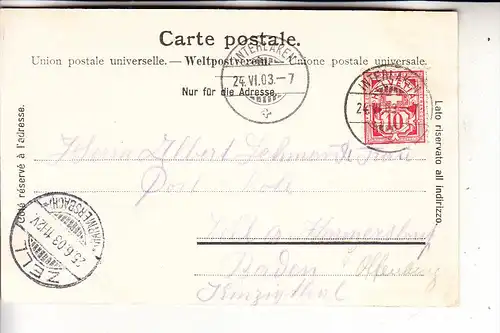 Carte postale.
Union postale universelle. — Weltpostverein. — Unione postale universale.
Nur für die Adresse.
Côté réservé à l'adresse.
Lato riservato all indirizzo.
INTERLAKEN
24.VI.03.–7
INTERLAKEN
24.VI.
HELVETIA
10
Herrn Albert Lehmann
Post
Zell a. Harmersbach
Baden Offenburg
Kinzigthal
ZELL
(HARMERSBACH)
25.6.03.11-12V.